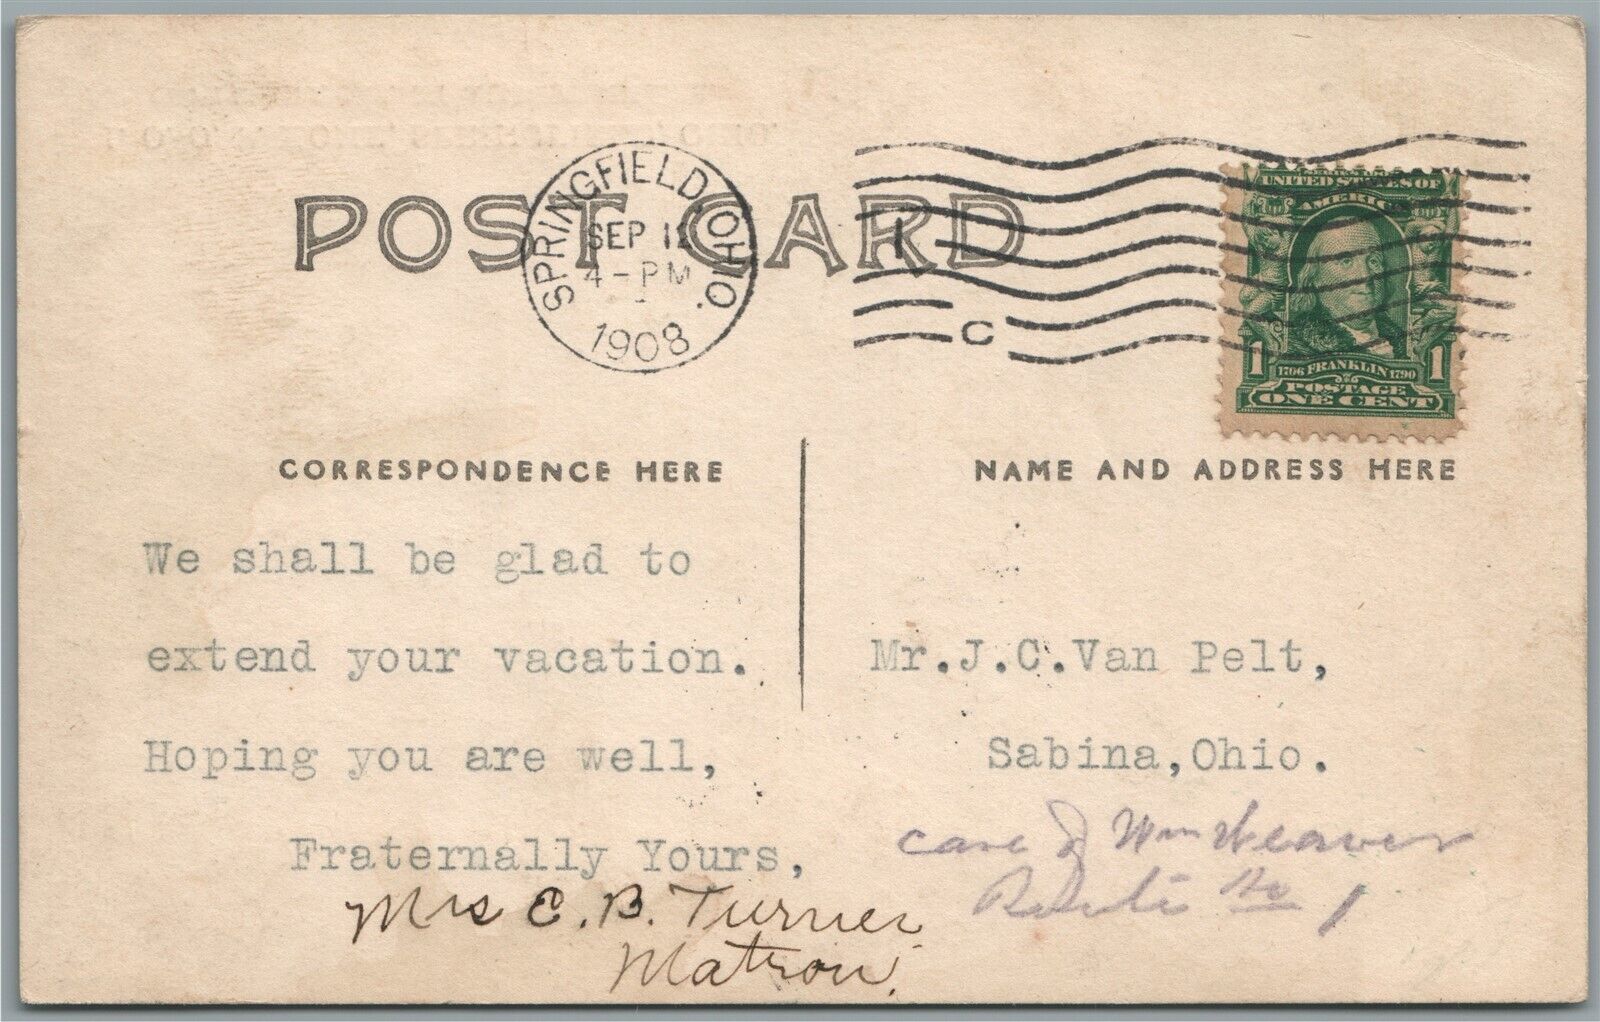 POST CARD
SPRINGFIELD, OHIO.
SEP 12
4-PM
1908
C
UNITED STATES OF
AMERICA
1 1706 FRANKLIN 1790 1
POSTAGE
ONE CENT
CORRESPONDENCE HERE
We shall be glad to
extend your vacation.
Hoping you are well,
Fraternally Yours,
Mrs E. B. Turner
Matron.
NAME AND ADDRESS HERE
Mr.J.C.Van Pelt,
Sabina,Ohio.
care of Wm Weaver
Route No 1